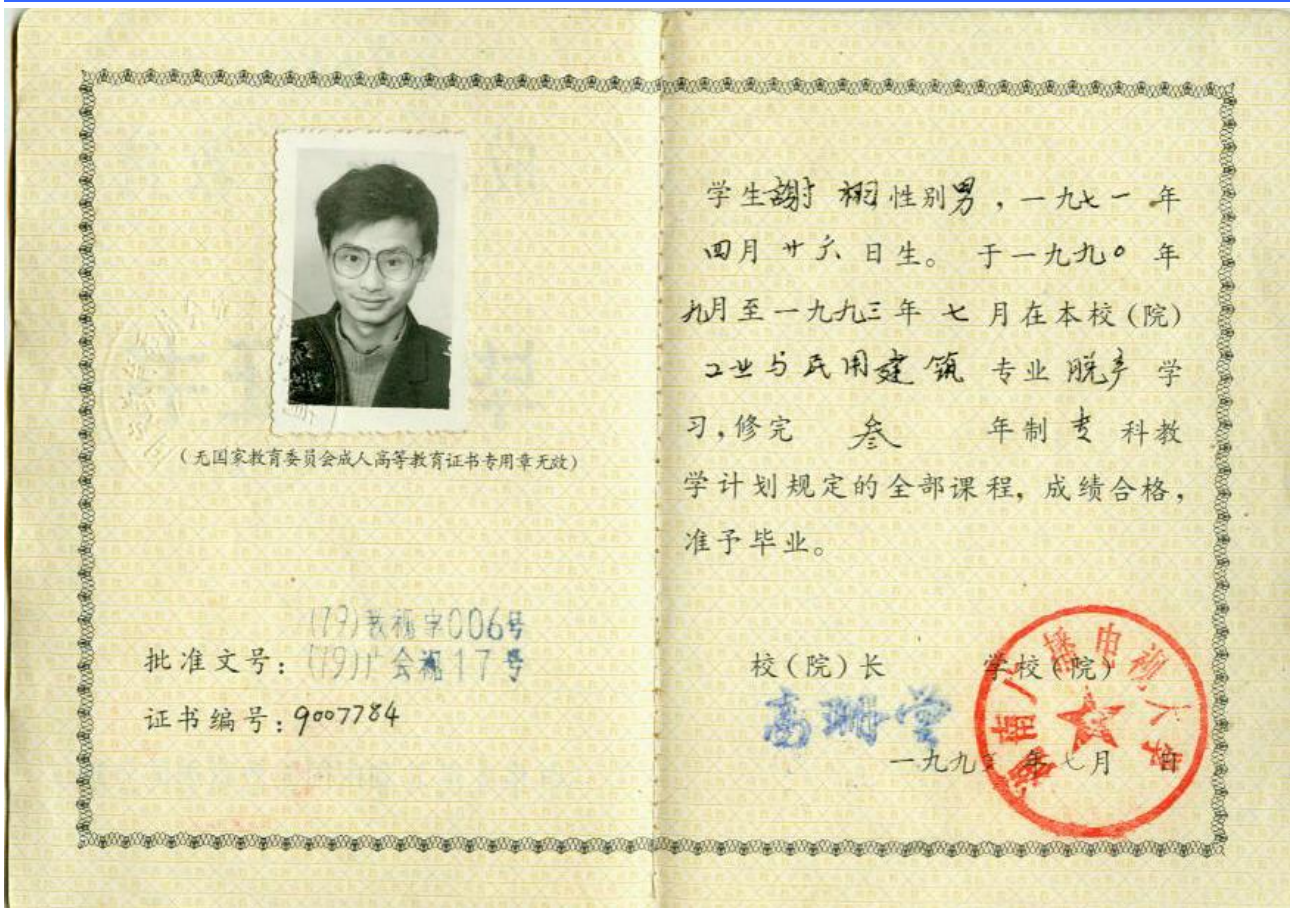 (无国家教育委员会成人高等教育证书专用章无效)
(79)教视字006号
批准文号:(79)广会视17号
证书编号:9007784
学生謝栩性别男,一九七一年
四月廿六日生。于一九九〇年
九月至一九九三年七月在本校(院)
工业与民用建筑专业脱产学
习,修完叁年制专科教
学计划规定的全部课程,成绩合格,
准予毕业。
校(院)长 学校(院)
广播电视大学
一九九 年七月 日